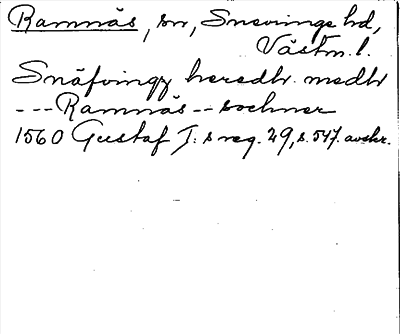 Ramnäs, sn, Snevringe hd,
Västm. l.
Snäfvingz heredh. medh
--- Ramnäs -- sochner
1560 Gustaf I: s reg. 29, s. 547. avskr.